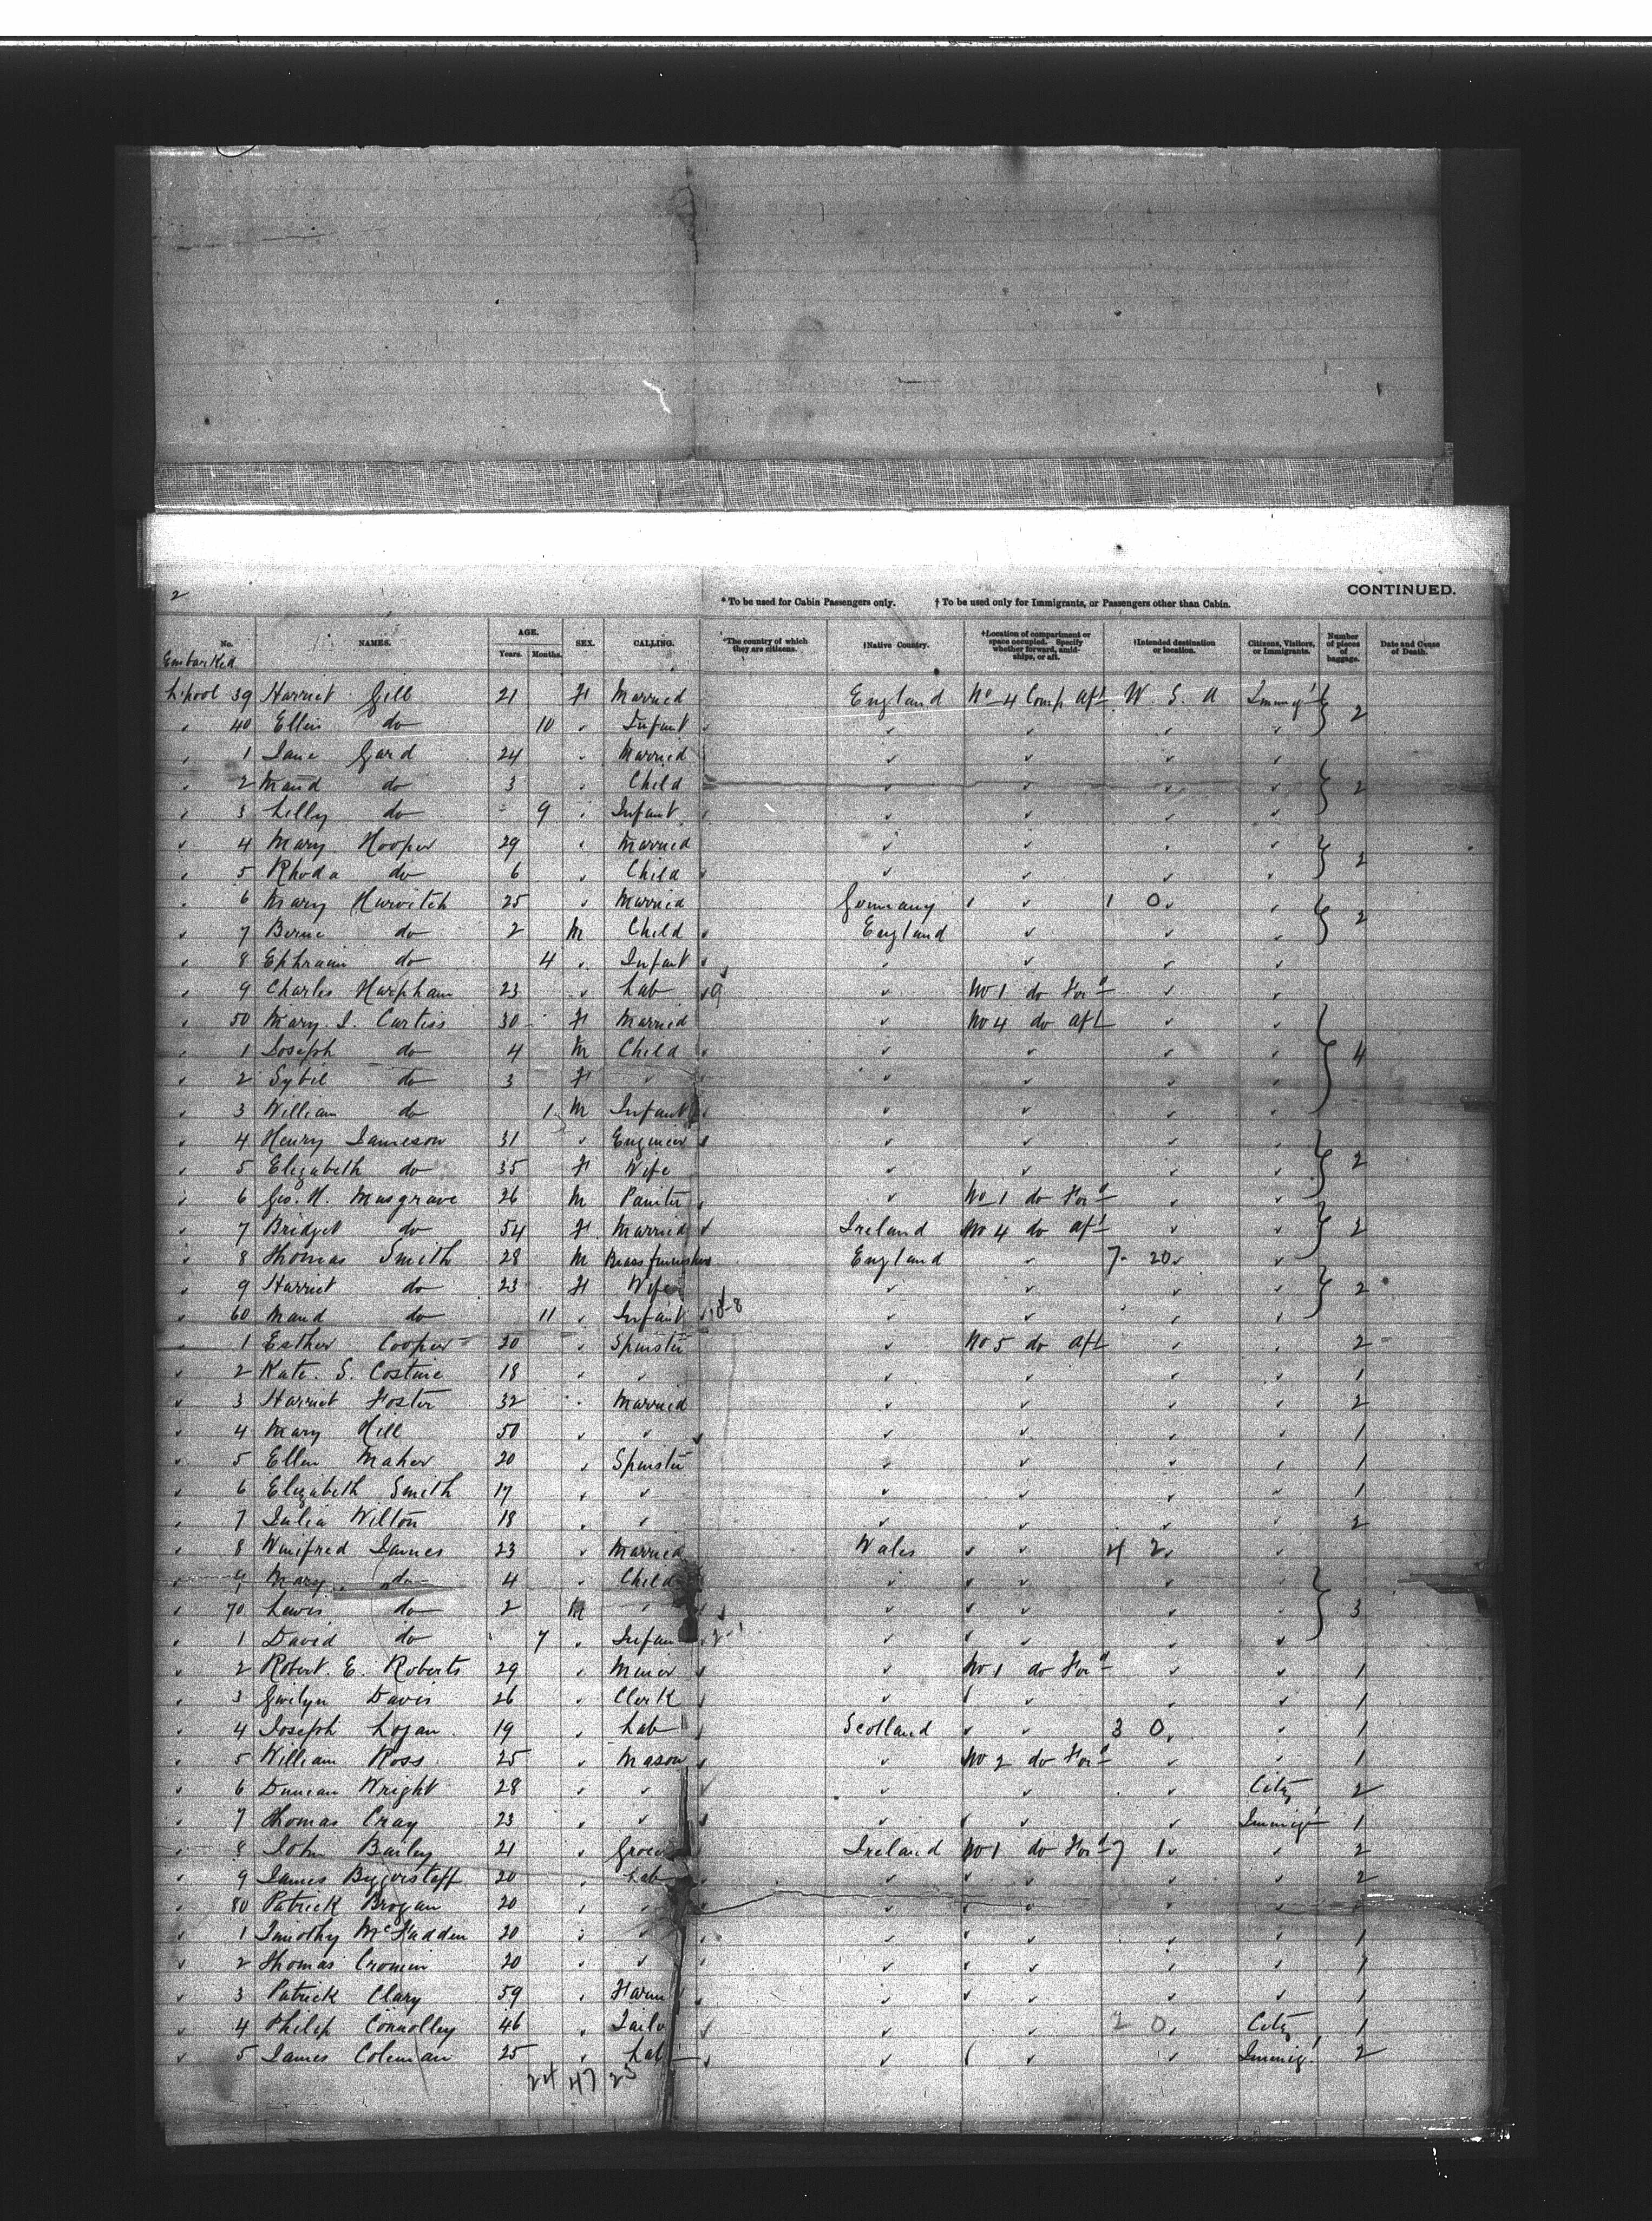 2
CONTINUED.
* To be used for Cabin Passengers only. † To be used only for Immigrants, or Passengers other than Cabin.
No. NAMES. AGE. Years. Months. SEX. CALLING. *The country of which they are citizens. †Native Country. †Location of compartment or space occupied. Specify whether forward, amidships, or aft. †Intended destination or location. Citizens, Visitors, or Immigrants. Number of pieces of baggage. Date and Cause of Death.
Embarked
L'pool 39 Harriet Gill 21 F Married England No 4 Comp Aft U. S. A Immigt 2
✓ 40 Ellen do 10 ✓ Infant ✓ ✓ ✓ ✓
✓ 1 Jane Gard 24 ✓ Married ✓ ✓ ✓ ✓
✓ 2 Maud do 3 ✓ Child ✓ ✓ ✓ ✓ 2
✓ 3 Lilly do 9 ✓ Infant ✓ ✓ ✓ ✓
✓ 4 Mary Hooper 29 ✓ Married ✓ ✓ ✓ ✓
✓ 5 Rhoda do 6 ✓ Child ✓ ✓ ✓ ✓ 2
✓ 6 Mary Hurvitch 25 ✓ Married Germany ✓ ✓ 1 0 ✓ ✓ 2
✓ 7 Berne do 2 M Child England ✓ ✓ ✓
✓ 8 Ephraim do 4 ✓ Infant ✓ ✓ ✓ ✓
✓ 9 Charles Harpham 23 ✓ Lab 9 ✓ No 1 do Ford ✓ ✓
✓ 50 Mary J. Curtiss 30 F Married ✓ No 4 do Aft ✓ ✓
✓ 1 Joseph do 4 M Child ✓ ✓ ✓ ✓ 4
✓ 2 Sybil do 3 F ✓ ✓ ✓ ✓ ✓
✓ 3 William do 1 M Infant ✓ ✓ ✓ ✓
✓ 4 Henry Jameson 31 ✓ Engineer ✓ ✓ ✓ ✓
✓ 5 Elizabeth do 35 F Wife ✓ ✓ ✓ ✓ 2
✓ 6 Geo. H. Musgrave 26 M Painter ✓ No 1 do Ford ✓ ✓
✓ 7 Bridget do 54 F Married Ireland No 4 do Aft ✓ ✓ 2
✓ 8 Thomas Smith 28 M Brassfinisher England ✓ 7 20 ✓ ✓
✓ 9 Harriet do 23 F Wife ✓ ✓ ✓ ✓ 2
✓ 60 Maud do 11 ✓ Infant ✓ ✓ ✓ ✓
✓ 1 Esther Cooper 20 ✓ Spinster ✓ No 5 do Aft ✓ ✓ 2
✓ 2 Kate. S. Costine 18 ✓ ✓ ✓ ✓ ✓ ✓ 1
✓ 3 Harriet Foster 32 ✓ Married ✓ ✓ ✓ ✓ 2
✓ 4 Mary Hill 50 ✓ ✓ ✓ ✓ ✓ ✓ 1
✓ 5 Ellen Maher 20 ✓ Spinster ✓ ✓ ✓ ✓ 1
✓ 6 Elizabeth Smith 17 ✓ ✓ ✓ ✓ ✓ ✓ 1
✓ 7 Julia Wilton 18 ✓ ✓ ✓ ✓ ✓ ✓ 2
✓ 8 Winifred James 23 ✓ Married Wales ✓ ✓ 4 2 ✓ ✓
✓ 9 Mary do 4 ✓ Child ✓ ✓ ✓ ✓ ✓
✓ 70 Lewis do 2 M ✓ ✓ ✓ ✓ ✓ 3
✓ 1 David do 7 ✓ Infan ✓ ✓ ✓ ✓ ✓
✓ 2 Robert. E. Roberts 29 ✓ Miner ✓ No 1 do Ford ✓ ✓ 1
✓ 3 Gwilyn Davis 26 ✓ Clerk ✓ ✓ ✓ ✓ ✓ 1
✓ 4 Joseph Logan 19 ✓ Lab Scotland ✓ ✓ 3 0 ✓ ✓ 1
✓ 5 William Ross 25 ✓ Mason ✓ No 2 do Ford ✓ ✓ 1
✓ 6 Duncan Wright 28 ✓ ✓ ✓ ✓ ✓ City 2
✓ 7 Thomas Cray 23 ✓ ✓ ✓ ✓ ✓ ✓ Immigt 1
✓ 8 John Barley 21 ✓ Grocer Ireland No 1 do Ford 7 1 ✓ ✓ 2
✓ 9 James Biggerstaff 20 ✓ Lab ✓ ✓ ✓ ✓ ✓ 2
✓ 80 Patrick Brogan 20 ✓ ✓ ✓ ✓ ✓ ✓ ✓
✓ 1 Timothy McFadden 20 ✓ ✓ ✓ ✓ ✓ ✓ ✓ 1
✓ 2 Thomas Cronin 20 ✓ ✓ ✓ ✓ ✓ ✓ ✓ 1
✓ 3 Patrick Clary 59 ✓ Farm ✓ ✓ ✓ ✓ ✓ 1
✓ 4 Philip Connolley 46 ✓ Tailo ✓ ✓ 2 0 ✓ City 1
✓ 5 James Coleman 25 ✓ Lab ✓ ✓ ✓ ✓ Immigt 2
24 47 25